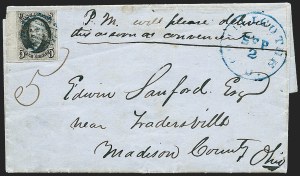 P.M. will please deliver
this as soon as convenient
SEP
2
5
Edwin Sanford Esq
near Tradersville
Madison County
Ohio